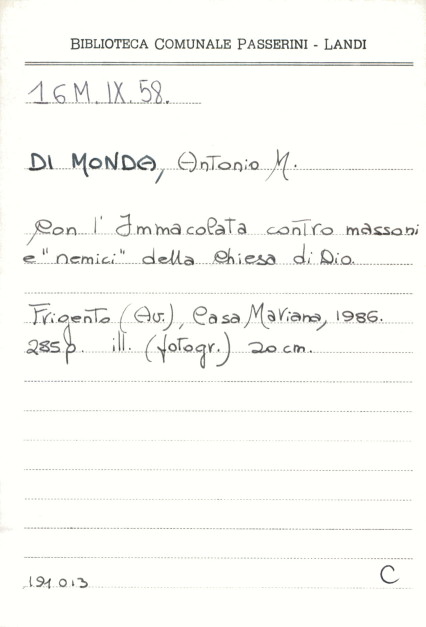 BIBLIOTECA COMUNALE PASSERINI - LANDI
16 M. IX. 58.
DI MONDA, Antonio M.
Con l'Immacolata contro massoni
e "nemici" della Chiesa di Dio.
Frigento (Av.), Casa Mariana, 1986.
285 p. ill. (fotogr.) 20 cm.
191.013
C